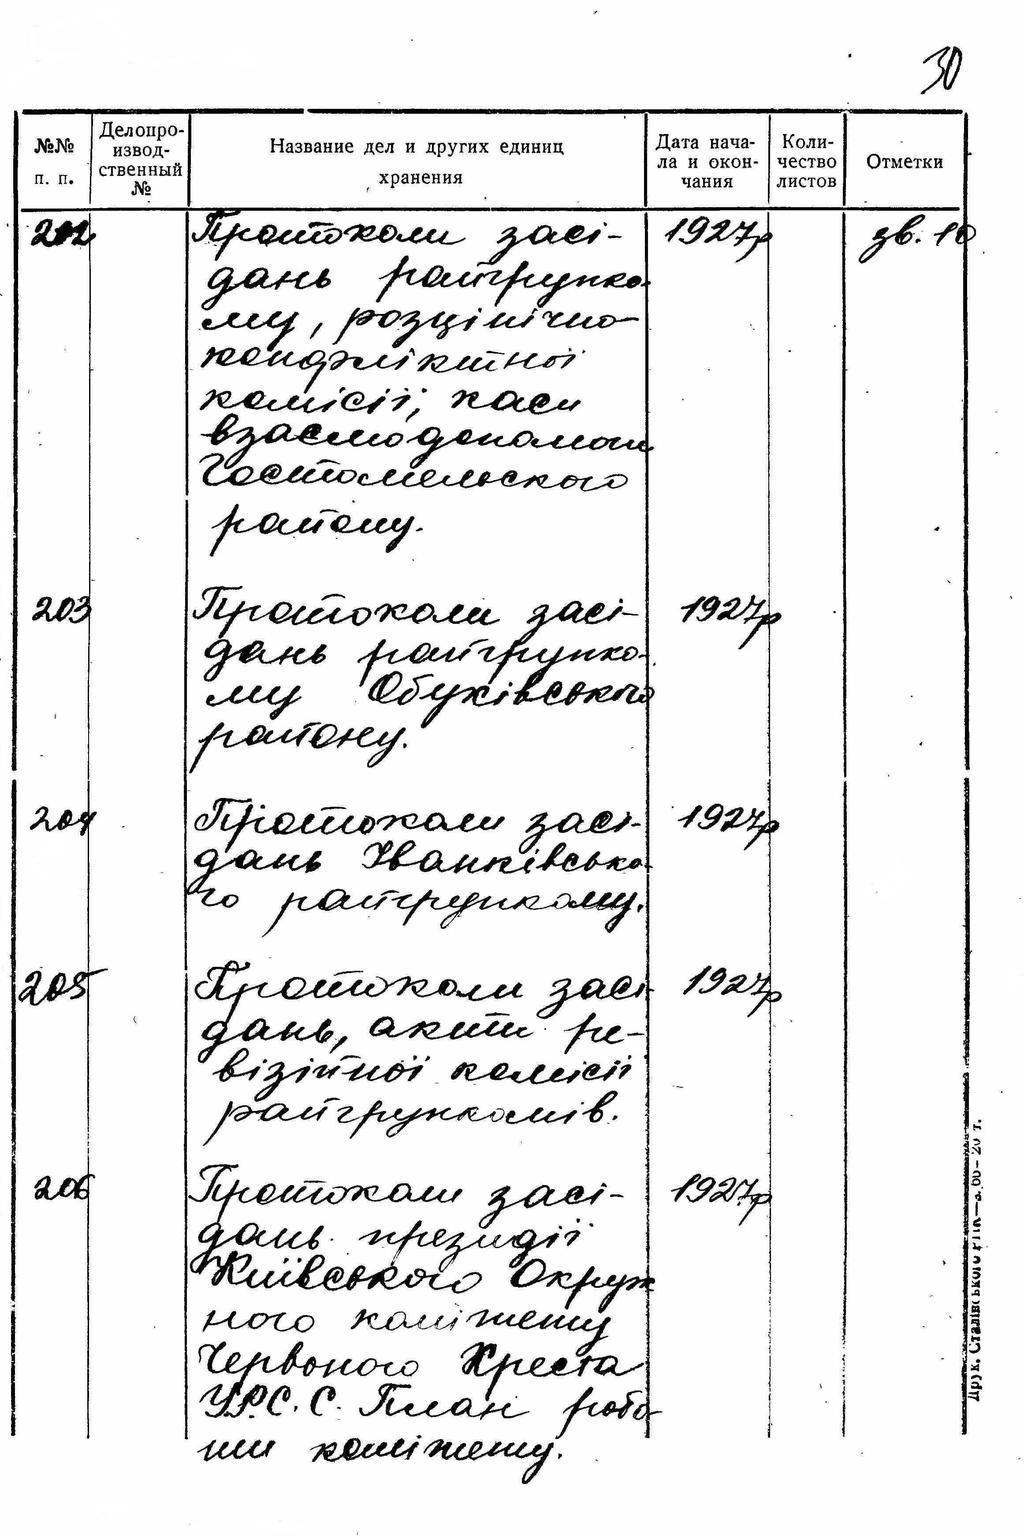 30
№№ п. п.
Делопро-
извод-
ственный
№
Название дел и других единиц
хранения
Дата нача-
ла и окон-
чания
Коли-
чество
листов
Отметки
202 Протоколи засі- 1927р зв. 10
дань райгрупко-
му, розцінічно-
конфліктної
комісії, каси
взаємодопомоги
Гостомельского
району.
203 Протоколи засі- 1927р
дань райгрупко-
му Обухівського
району.
204 Протоколи засі- 1927р
дань Іванківсько-
го райгрупкому.
205 Протоколи засі- 1927р
дань, акти ре-
візійної комісії
райгрупкомів.
206 Протоколи засі- 1927р
дань президії
Київського Окруж
ного комітету
Червоного Хреста
У.Р.С.С. План робо-
ти комітету.
Друк. Сталінського